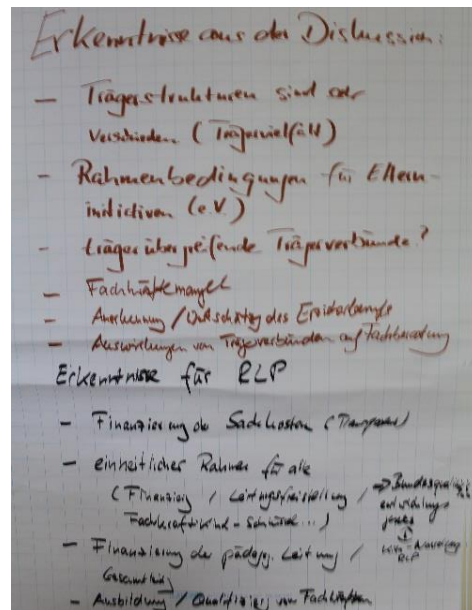 Erkenntnisse aus der Diskussion:
- Trägerstrukturen sind sehr
verschieden (Trägervielfalt)
- Rahmenbedingungen für Eltern-
initiativen (e.V.)
- trägerübergreifende Trägerverbünde?
- Fachkräftemangel
- Anerkennung / Wertschätzung des Erzieherberufs
- Auswirkungen von Trägerverbünden auf Fachberatung
Erkenntnisse für RLP
- Finanzierung der Sachkosten (Transparenz)
- einheitlicher Rahmen für alle
(Finanzierung / Leitungsfreistellung /
Fachkraft-Kind-Schlüssel...)
→ Bundesqualitäts-
entwicklungs-
gesetz
RLP
- Finanzierung der pädag. Leitung /
Gesamtleitung
- Ausbildung / Qualifizierung von Fachkräften